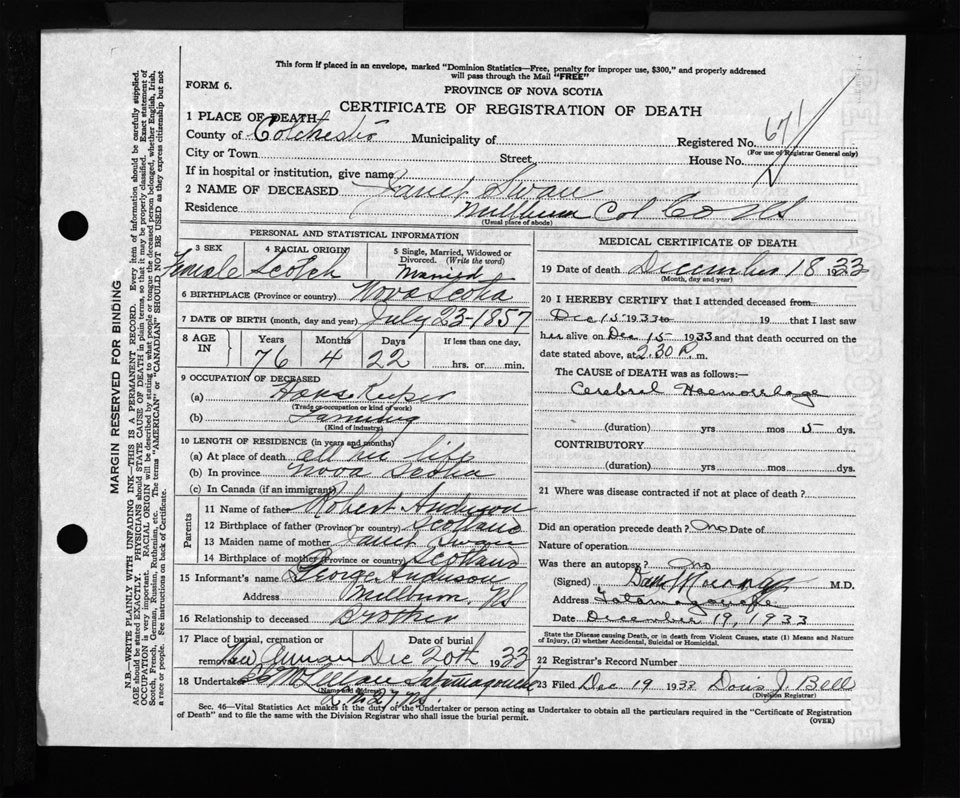 This form if placed in an envelope, marked "Dominion Statistics—Free, penalty for improper use, $300," and properly addressed
will pass through the Mail "FREE"
FORM 6.
PROVINCE OF NOVA SCOTIA
CERTIFICATE OF REGISTRATION OF DEATH
1 PLACE OF DEATH
County of Colchester Municipality of Registered No. 671
(For use of Registrar General only)
City or Town Street House No.
If in hospital or institution, give name
2 NAME OF DECEASED Janet Swan
Residence Millburn Col Co NS
(Usual place of abode)
PERSONAL AND STATISTICAL INFORMATION
3 SEX 4 RACIAL ORIGIN 5 Single, Married, Widowed or
Divorced. (Write the word)
Female Scotch Married
6 BIRTHPLACE (Province or country) Nova Scotia
7 DATE OF BIRTH (month, day and year) July 23-1857
8 AGE IN Years Months Days If less than one day,
76 4 22 hrs. or min.
9 OCCUPATION OF DECEASED
(a) House Keeper
(Trade or occupation or kind of work)
(b) Farming
(Kind of industry)
10 LENGTH OF RESIDENCE (in years and months)
(a) At place of death all her life
(b) In province Nova Scotia
(c) In Canada (if an immigrant)
Parents
11 Name of father Robert Anderson
12 Birthplace of father (Province or country) Scotland
13 Maiden name of mother Janet Swan
14 Birthplace of mother (Province or country) Scotland
15 Informant's name George Anderson
Address Millburn NS
16 Relationship to deceased Brother
17 Place of burial, cremation or Date of burial
removal Dec 20th 1933
18 Undertaker McLellan Tatamagouche
(Name and address)
N.S.
MEDICAL CERTIFICATE OF DEATH
19 Date of death December 18 1933
(Month, day and year)
20 I HEREBY CERTIFY that I attended deceased from
Dec 15 1933 to 19 that I last saw
her alive on Dec 15 1933 and that death occurred on the
date stated above, at 2.30 P. m.
The CAUSE OF DEATH was as follows:—
Cerebral Haemorrhage
(duration) yrs mos 5 dys.
CONTRIBUTORY
(duration) yrs. mos. dys.
21 Where was disease contracted if not at place of death?
Did an operation precede death? no Date of
Nature of operation
Was there an autopsy? no
(Signed) M.D.
Address Tatamagouche
Date December 19, 1933
State the Disease causing Death, or in death from Violent Causes, state (1) Means and Nature
of Injury, (2) whether Accidental, Suicidal or Homicidal.
22 Registrar's Record Number
23 Filed Dec 19 1933 Doris J. Bell
(Division Registrar)
Sec. 46—Vital Statistics Act makes it the duty of the Undertaker or person acting as Undertaker to obtain all the particulars required in the "Certificate of Registration
of Death" and to file the same with the Division Registrar who shall issue the burial permit.
(OVER)
MARGIN RESERVED FOR BINDING
N.B.—WRITE PLAINLY WITH UNFADING INK—THIS IS A PERMANENT RECORD. Every item of information should be carefully supplied.
AGE should be stated EXACTLY. PHYSICIANS should STATE CAUSE OF DEATH in plain terms, so that it may be properly classified. Exact statement of
OCCUPATION is very important. RACIAL ORIGIN will be described by stating to what people or tongue the deceased person belonged, whether English, Irish,
Scotch, French, German, Russian, Ruthenian, etc. The terms "AMERICAN" or "CANADIAN" SHOULD NOT BE USED as they express citizenship but not
a race or people. See instructions on back of Certificate.